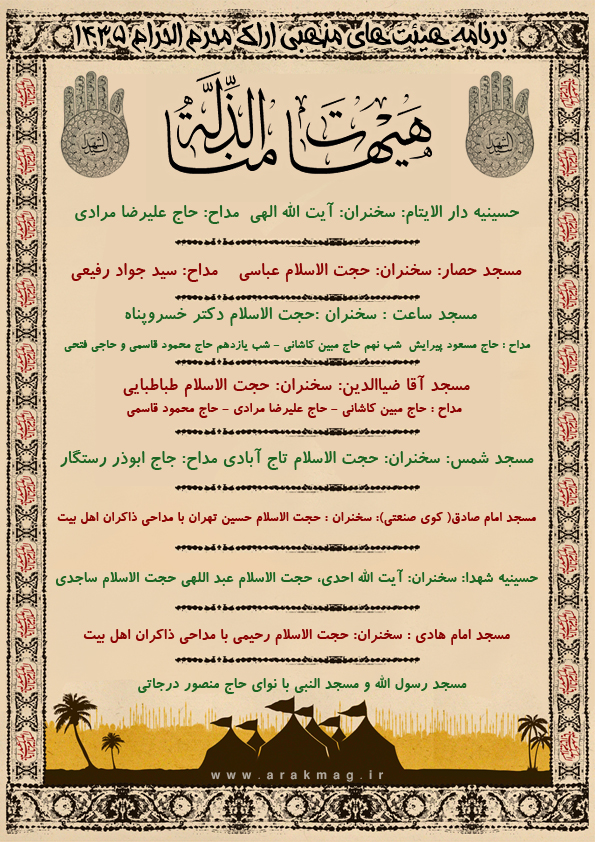 برنامه هیئت‌های مذهبی اراک محرم الحرام ۱۴۳۵
هَیهَات مِنَّا الذِّلَّةُ
حسینیه دار الایتام: سخنران: آیت الله الهی مداح: حاج علیرضا مرادی
مسجد حصار: سخنران: حجت الاسلام عباسی مداح: سید جواد رفیعی
مسجد ساعت : سخنران :حجت الاسلام دکتر خسروپناه
مداح : حاج مسعود پیرایش شب نهم حاج مبین کاشانی - شب یازدهم حاج محمود قاسمی و حاجی فتحی
مسجد آقا ضیاالدین: سخنران: حجت الاسلام طباطبایی
مداح : حاج مبین کاشانی - حاج علیرضا مرادی - حاج محمود قاسمی
مسجد شمس: سخنران: حجت الاسلام تاج آبادی مداح: جاج ابوذر رستگار
مسجد امام صادق( کوی صنعتی): سخنران : حجت الاسلام حسین تهران با مداحی ذاکران اهل بیت
حسینیه شهدا: سخنران: آیت الله احدی، حجت الاسلام عبد اللهی حجت الاسلام ساجدی
مسجد امام هادی : سخنران: حجت الاسلام رحیمی با مداحی ذاکران اهل بیت
مسجد رسول الله و مسجد النبی با نوای حاج منصور درجاتی
www.arakmag.ir